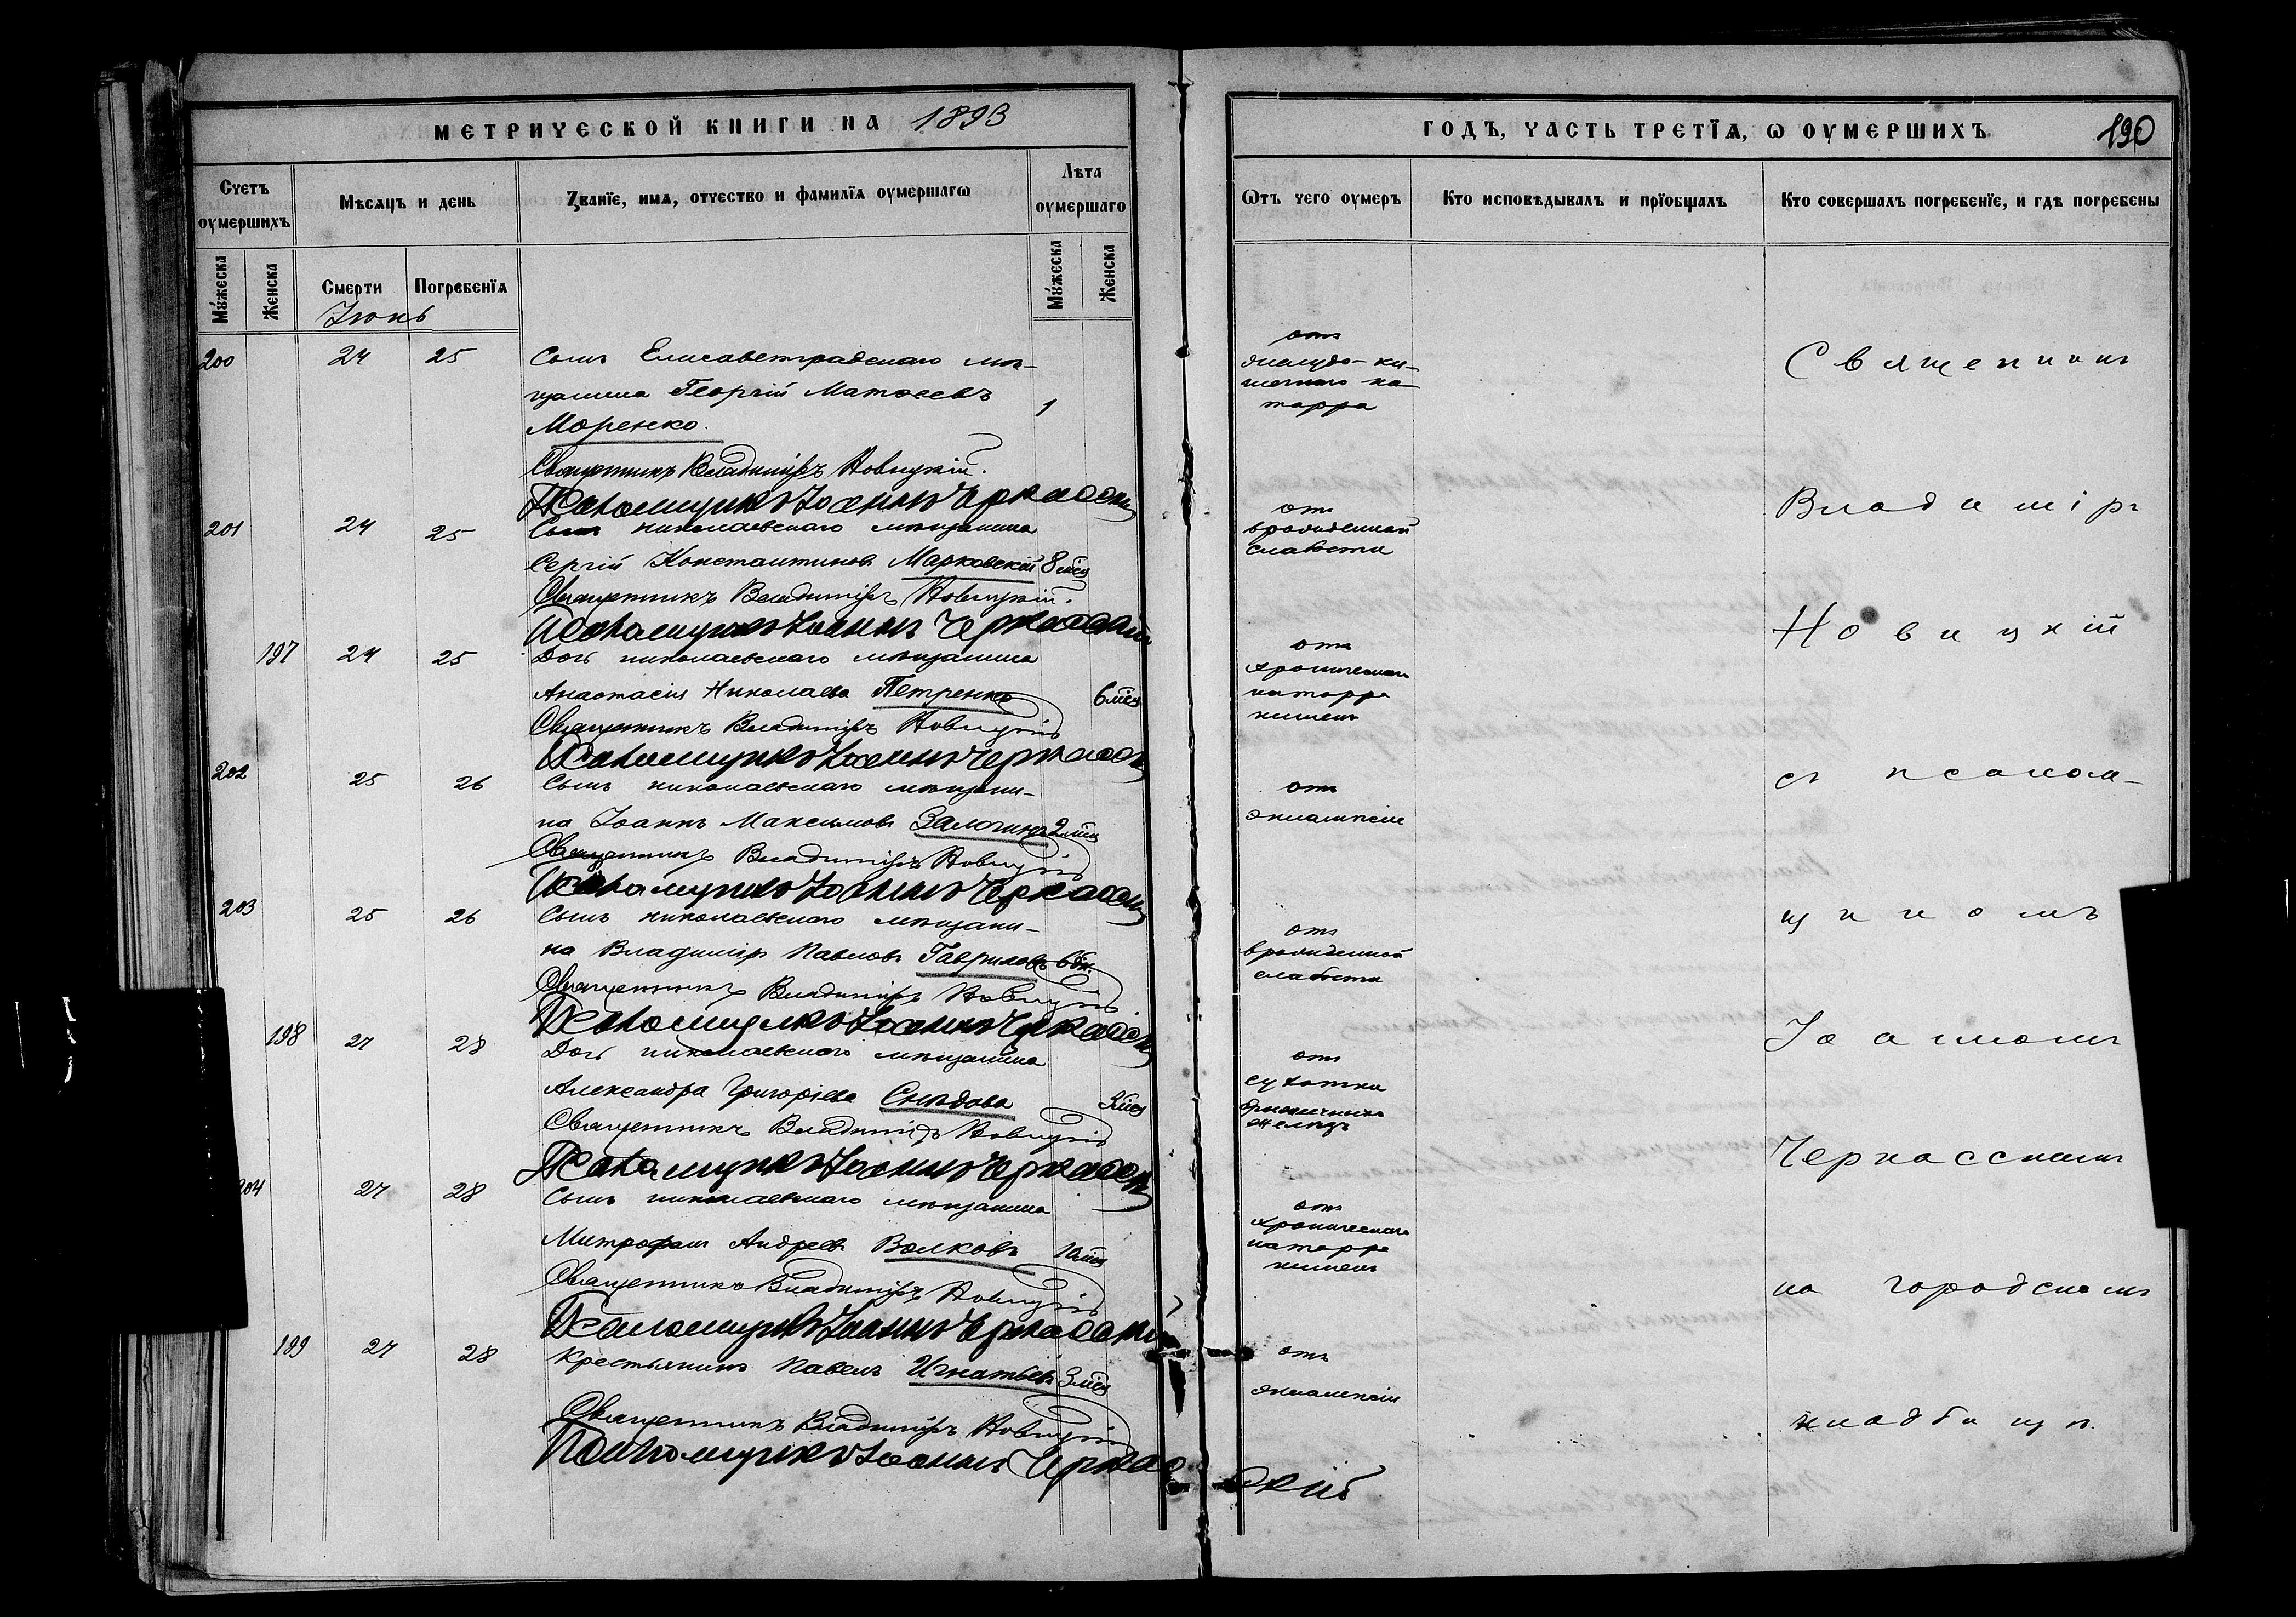 МЕТРИЧЕСКОЙ КНИГИ НА 1893
Счетъ оумершихъ
Мѣсяцъ и день
Званїе, имя, отчество и фамилїя оумершагѡ
Лѣта оумершаго
Мꙋжеска
Женска
Смерти
Погребенїя
Мꙋжеска
Женска
Іюнь
200 24 25 Сынъ Елисаветградскаго мѣ-
щанина Георгій Матѳеевъ 1
Моренко.
Священникъ Владиміръ Новицкій.
Псаломщикъ Іоаннъ Черкасскій
201 24 25 Сынъ николаевскаго мѣщанина
Сергій Константиновъ Марковскій 8 мѣс
Священникъ Владиміръ Новицкій.
Псаломщикъ Іоаннъ Черкасскій
197 24 25 Дочь николаевскаго мѣщанина
Анастасія Николаева Петренко 6 мѣс
Священникъ Владиміръ Новицкій
Псаломщикъ Іоаннъ Черкасскій
202 25 26 Сынъ николаевскаго мѣщани-
на Іоаннъ Максимовъ 2 мѣс
Священникъ Владиміръ Новицкій
Псаломщикъ Іоаннъ Черкасскій
203 25 26 Сынъ николаевскаго мѣщани-
на Владиміръ Павловъ Гавриловъ 6 дн.
Священникъ Владиміръ Новицкій
Псаломщикъ Іоаннъ Черкасскій
198 27 28 Дочь николаевскаго мѣщанина
Александра Григоріева 3 мѣс
Священникъ Владиміръ Новицкій
Псаломщикъ Іоаннъ Черкасскій
204 27 28 Сынъ николаевскаго мѣщанина
Митрофанъ Андреевъ Волковъ 10 мѣс
Священникъ Владиміръ Новицкій
Псаломщикъ Іоаннъ Черкасскій
199 27 28 Крестьянинъ Павелъ Игнатьевъ 3 мѣс
Священникъ Владиміръ Новицкій
Псаломщикъ Іоаннъ Черкасскій
ГОДЪ, ЧАСТЬ ТРЕТЇЯ, Ѡ ОУМЕРШИХЪ 190
Ѿтъ чего оумеръ
Кто исповѣдывалъ и прїобщалъ
Кто совершалъ погребенїе, и гдѣ погребены
отъ
желудо-ки-
шечнаго ка-
тарра
отъ
врожденной
слабости
отъ
хроническаго
катарра
кишекъ
отъ
экламсіи
отъ
врожденной
слабости
отъ
сухотки
брыжечныхъ
железъ
отъ
хроническаго
катарра
кишекъ
отъ
эклампсіи
Священникъ
Владиміръ
Новицкій
съ псалом-
щикомъ
Іоанномъ
Черкасскимъ
на городскомъ
кладбищѣ.